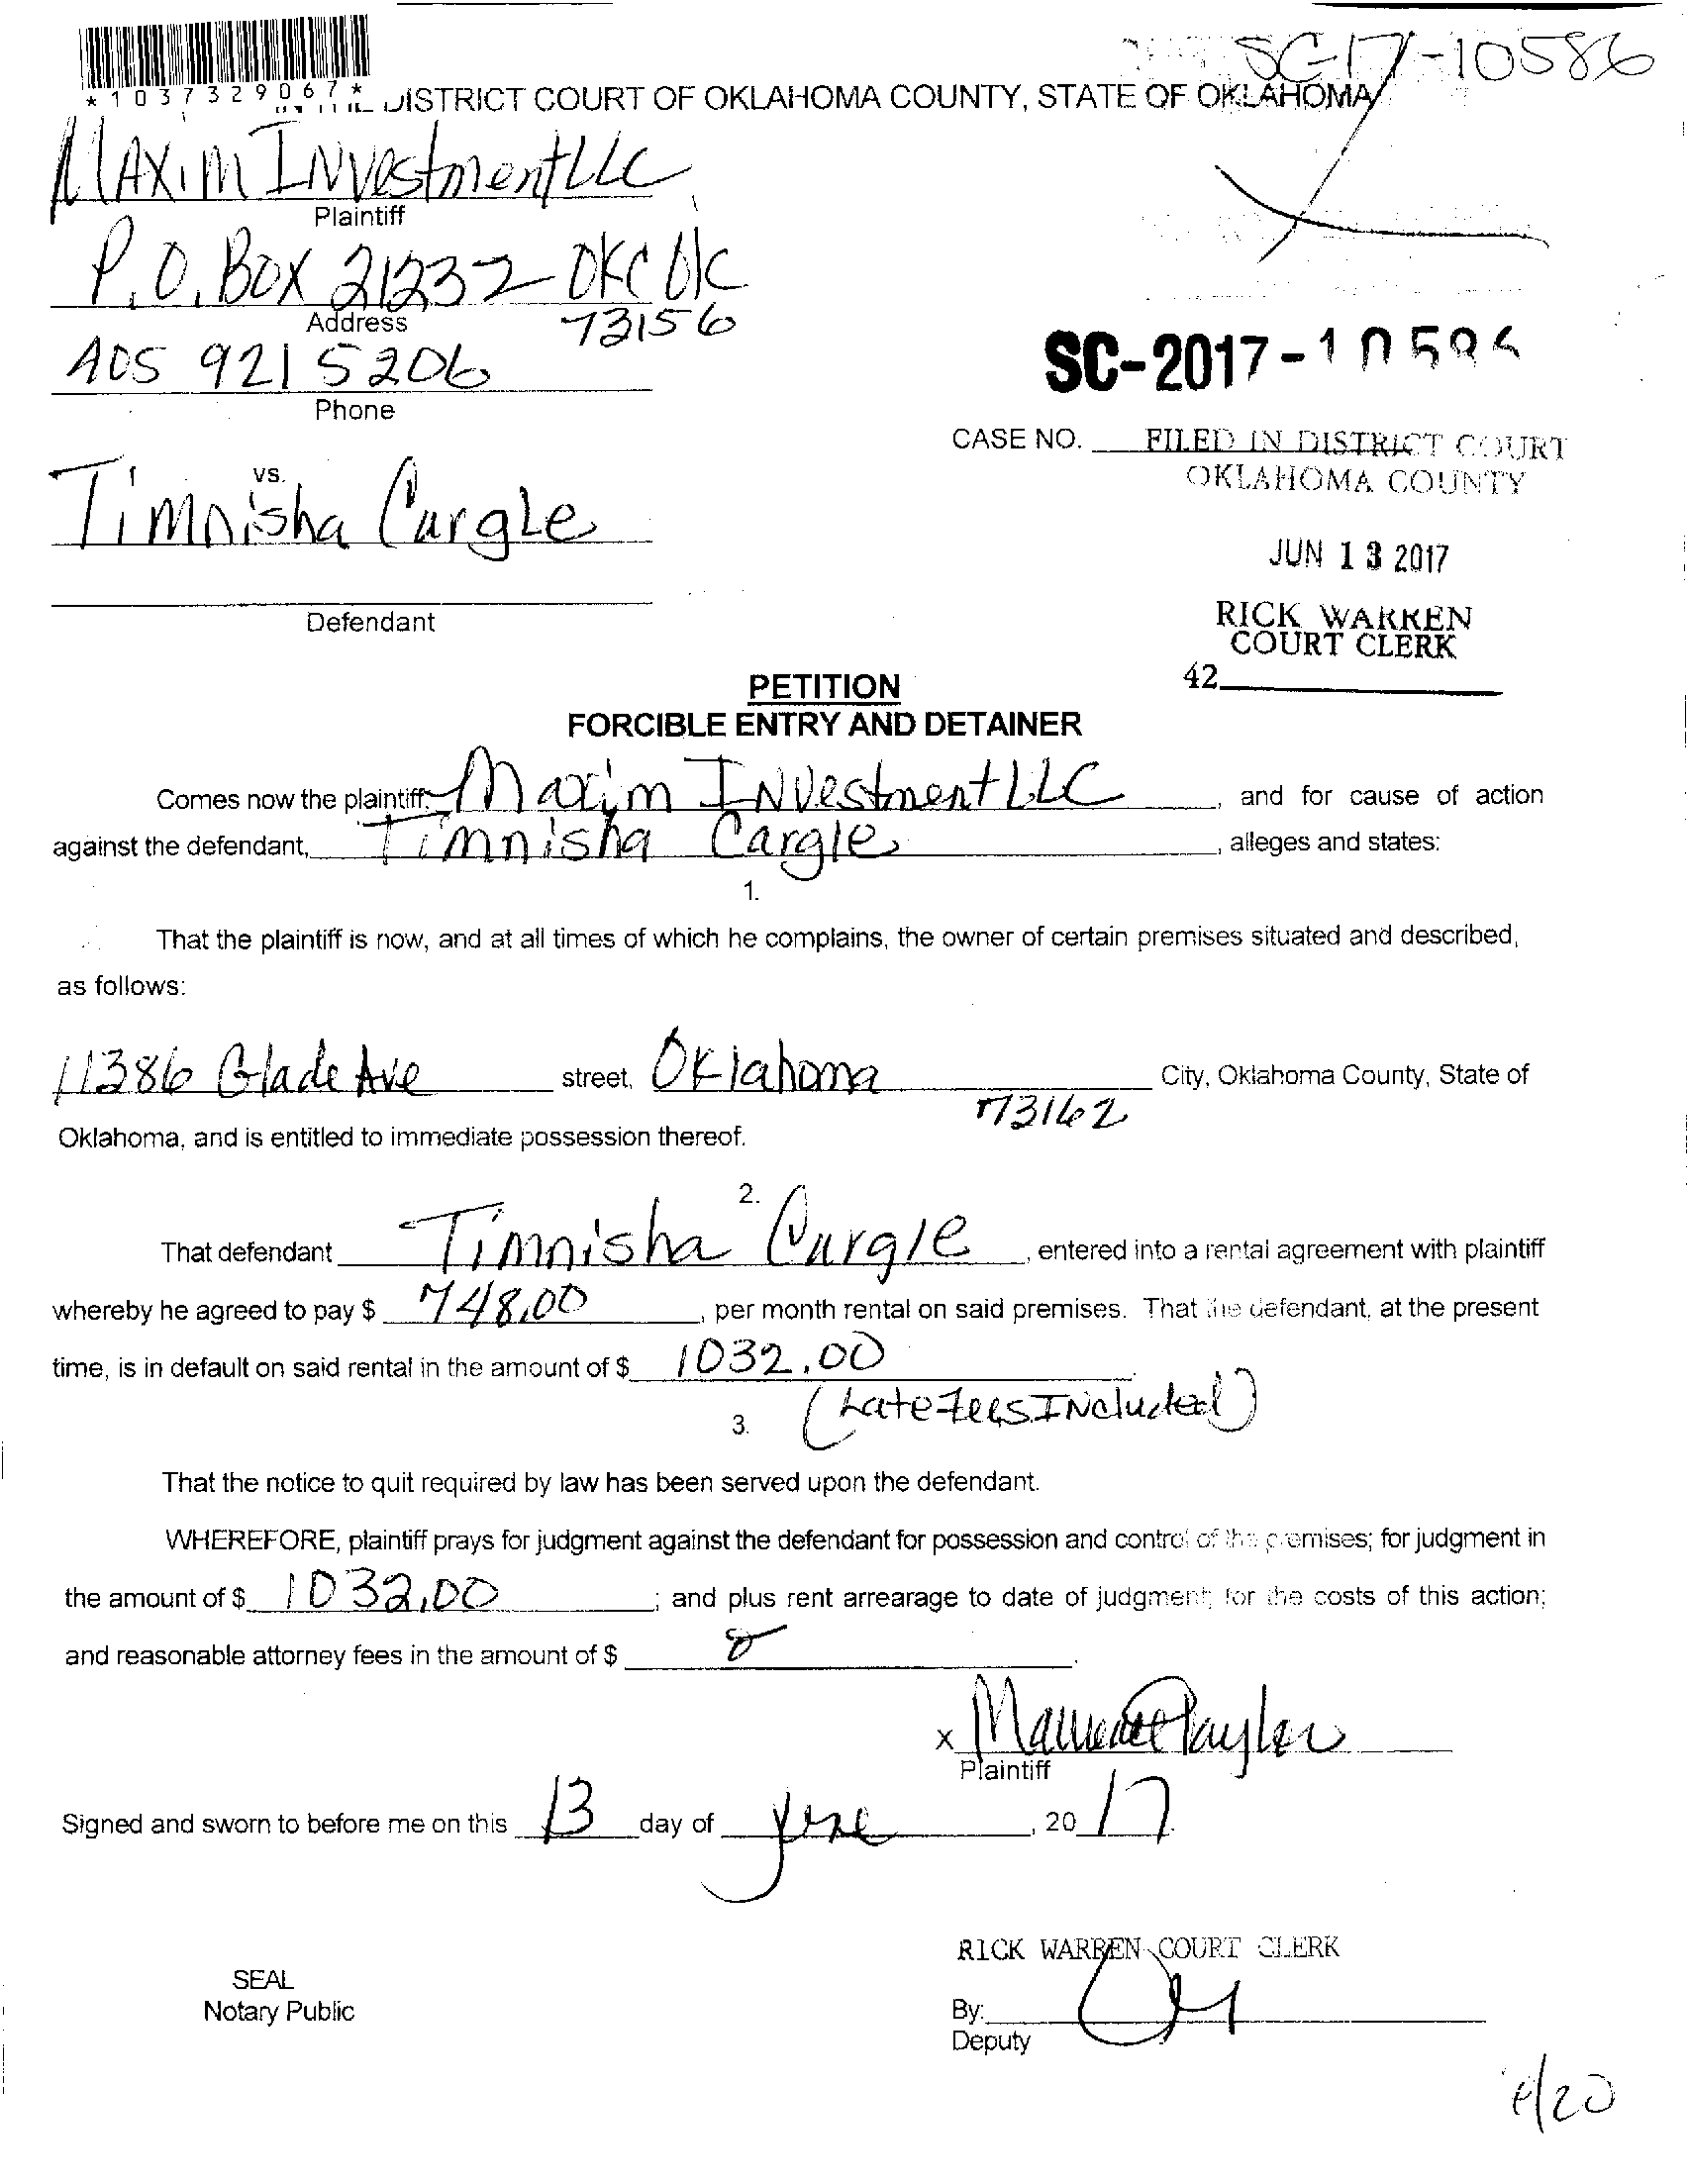 SC-17-10586
*1037329067*
DISTRICT COURT OF OKLAHOMA COUNTY, STATE OF OKLAHOMA
MAXIM INVestment LLC
Plaintiff
P.O. Box 21232 OKC OK
Address
73156
405 921 5206
Phone
SC-2017-10586
CASE NO.
FILED IN DISTRICT COURT
OKLAHOMA COUNTY
vs.
Timnisha Cargle
JUN 13 2017
Defendant
RICK WARREN
COURT CLERK
42
PETITION
FORCIBLE ENTRY AND DETAINER
Comes now the plaintiff, Maxim INVestment LLC, and for cause of action
against the defendant, Timnisha Cargle, alleges and states:
1.
That the plaintiff is now, and at all times of which he complains, the owner of certain premises situated and described,
as follows:
11386 Glade Ave street, Oklahoma City, Oklahoma County, State of
73162
Oklahoma, and is entitled to immediate possession thereof.
2.
That defendant Timnisha Cargle, entered into a rental agreement with plaintiff
whereby he agreed to pay $ 748.00, per month rental on said premises. That the defendant, at the present
time, is in default on said rental in the amount of $ 1032.00
(Late fees INcluded)
3.
That the notice to quit required by law has been served upon the defendant.
WHEREFORE, plaintiff prays for judgment against the defendant for possession and control of the premises; for judgment in
the amount of $ 1032.00; and plus rent arrearage to date of judgment; for the costs of this action;
and reasonable attorney fees in the amount of $
x
Plaintiff
Signed and sworn to before me on this 13 day of June, 20 17.
RICK WARREN COURT CLERK
SEAL
Notary Public
By:
Deputy